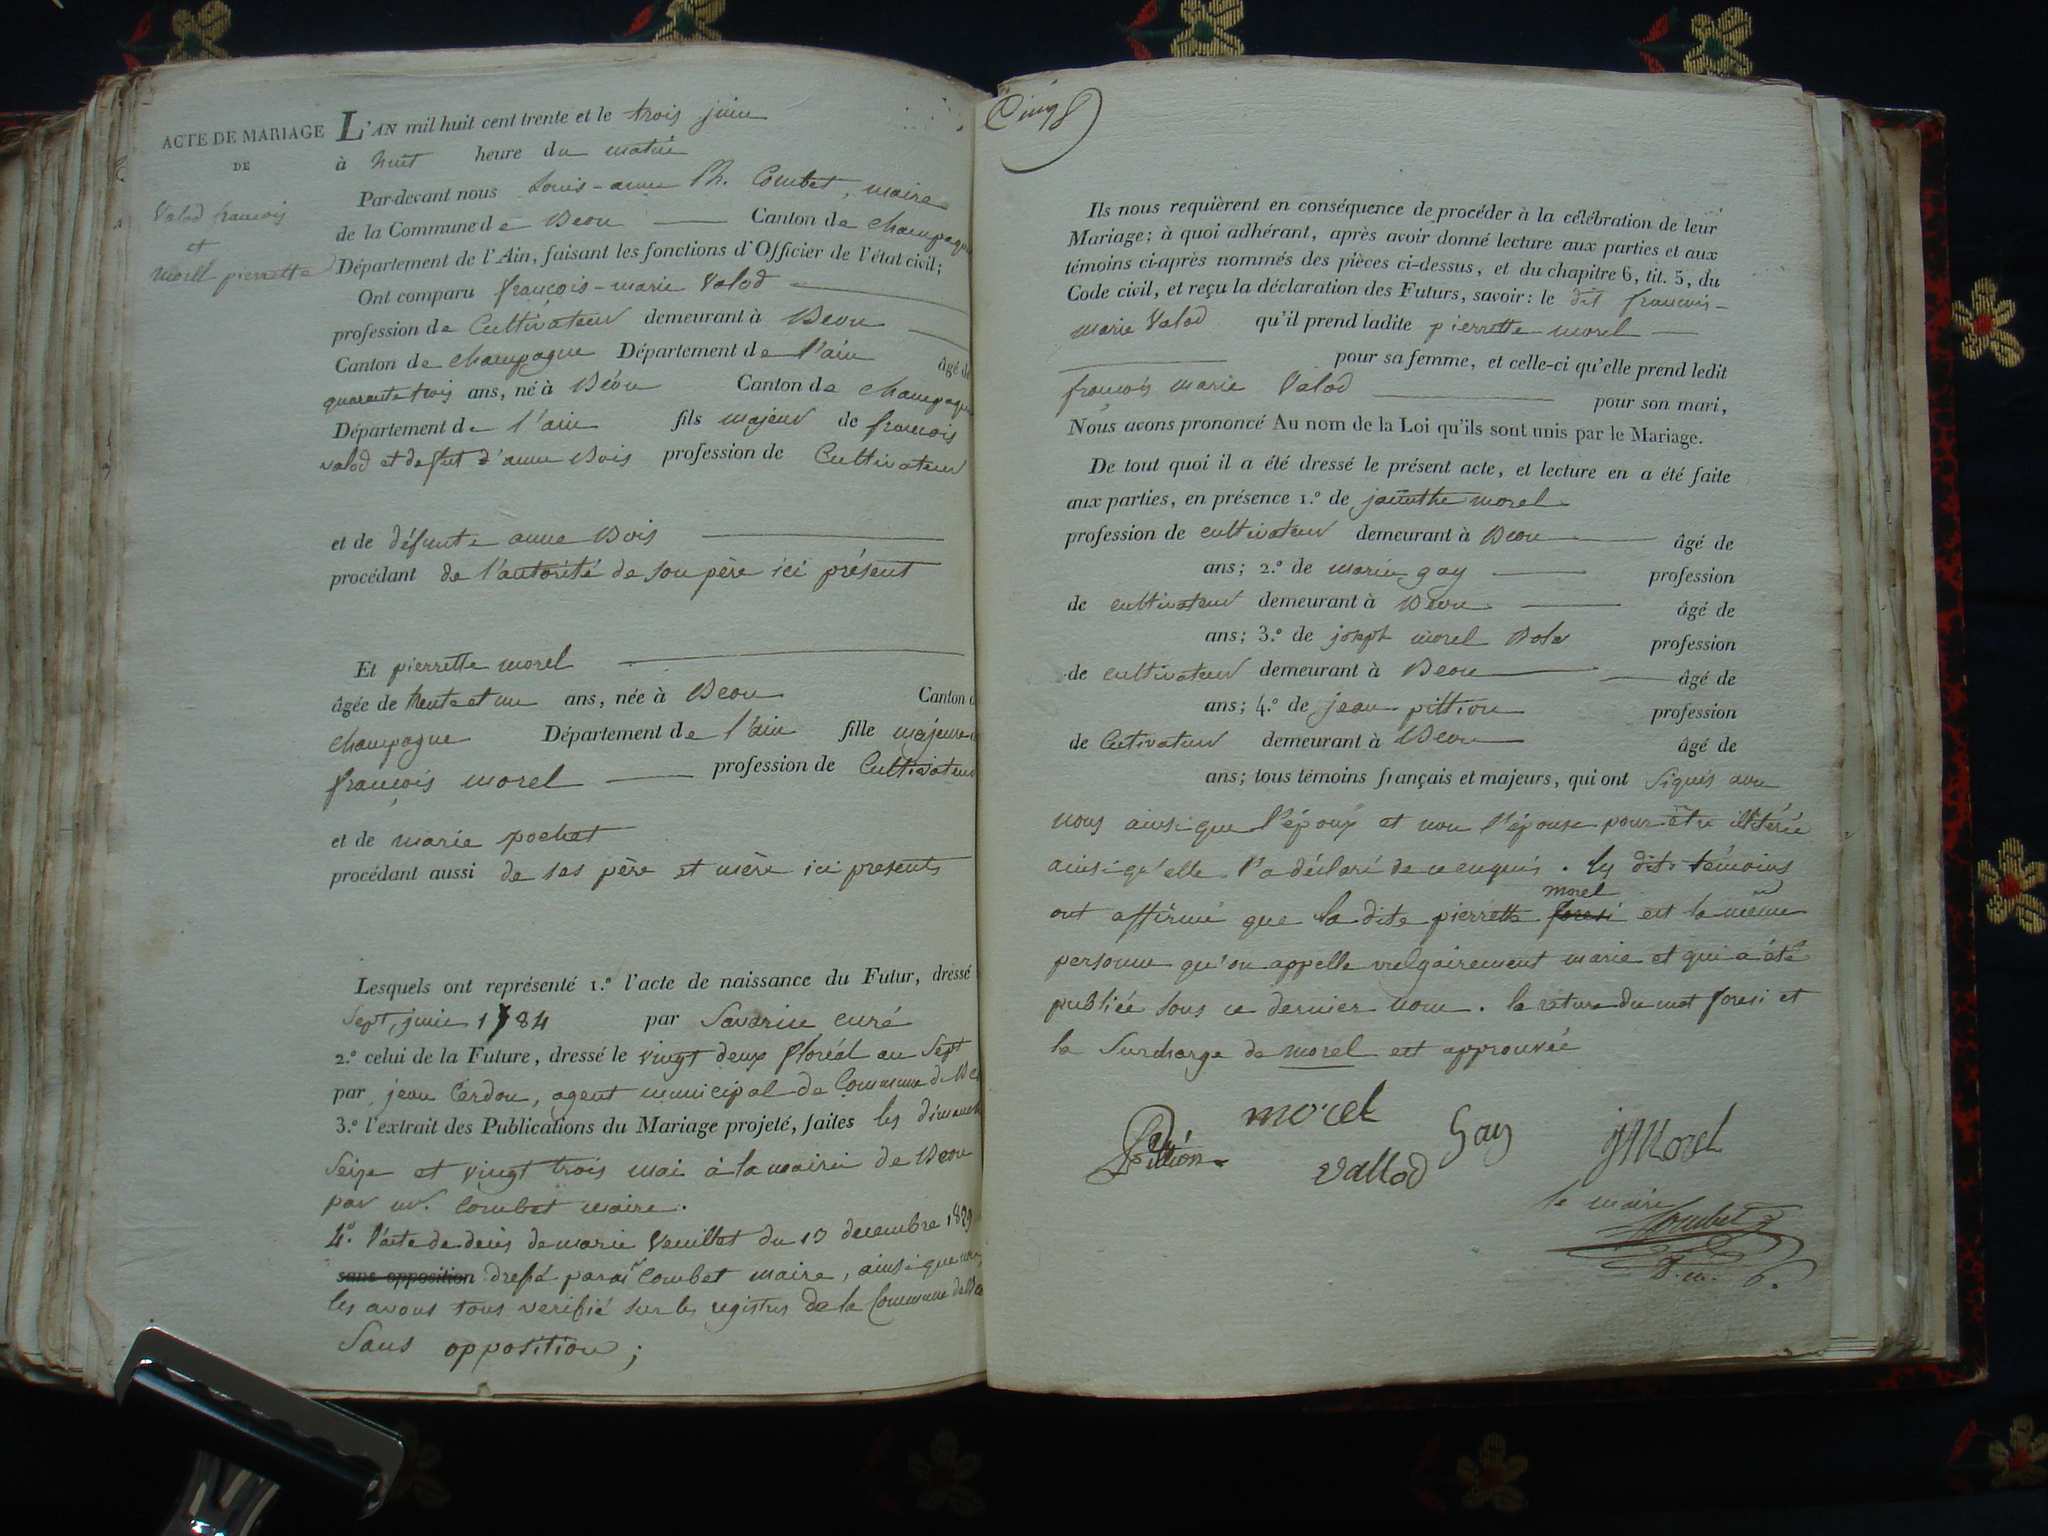 ACTE DE MARIAGE
DE
Valod françois
et
morel pierrette
L'AN mil huit cent trente et le trois juin
à huit heure du matin
Par-devant nous Louis-anne Ph. Combet, maire
de la Commune de Beon Canton de champagne
Département de l'Ain, faisant les fonctions d'Officier de l'état civil;
Ont comparu françois-marie Valod
profession de Cultivateur demeurant à Beon
Canton de champagne Département de l'ain âgé de
quarante trois ans, né à Béon Canton de champagne
Département de l'ain fils majeur de françois
valod et defut d'anne Bois profession de Cultivateur
et de défunte anne Bois
procédant de l'autorité de son père ici présent
Et pierrette morel
âgée de trente et un ans, née à Beon Canton d
champagne Département de l'ain fille majeure
françois morel profession de Cultivateur
et de marie pochet
procédant aussi de ses père et mère ici presents
Lesquels ont représenté 1.º l'acte de naissance du Futur, dressé
Sept juin 1784 par Savarin curé
2.º celui de la Future, dressé le vingt deux floréal an Sept
par jean Cerdon, agent municipal de Commune de Be
3.º l'extrait des Publications du Mariage projeté, faites les dimanch
Seize et vingt trois mai à la mairie de Beon
par mr. Combet maire.
4º. l'acte de décès de marie Veuillet du 13 decembre 1829
sans opposition dressé par mr Combet maire, ainsi que nous
les avons tous verifié sur les registres de la Commune de Be
Sans opposition;
Cinq
Ils nous requièrent en conséquence de procéder à la célébration de leur
Mariage; à quoi adhérant, après avoir donné lecture aux parties et aux
témoins ci-après nommés des pièces ci-dessus, et du chapitre 6, tit. 5, du
Code civil, et reçu la déclaration des Futurs, savoir: le dit françois-
marie Valod qu'il prend ladite pierrette morel
pour sa femme, et celle-ci qu'elle prend ledit
françois marie Valod pour son mari,
Nous avons prononcé Au nom de la Loi qu'ils sont unis par le Mariage.
De tout quoi il a été dressé le présent acte, et lecture en a été faite
aux parties, en présence 1.º de jacinthe morel
profession de cultivateur demeurant à Beon âgé de
ans; 2.º de marin gay profession
de cultivateur demeurant à Beon âgé de
ans; 3.º de joseph morel profession
de cultivateur demeurant à Beon âgé de
ans; 4.º de jean pittion profession
de Cutivateur demeurant à Beon âgé de
ans; tous témoins français et majeurs, qui ont Signés avec
nous ainsi que l'époux et non l'épouse pour être illiterée
ainsi qu'elle l'a déclaré de ce enquis. les dits témoins
morel
ont affirmé que la dite pierrette foresi est la même
personne qu'on appelle vulgairement marie et qui a été
publiée sous ce dernier nom. la rature du mot foresi et
la Surcharge de morel est approuvée
Pittion
morel
Vallod
Gay
jMorel
le maire
Combet